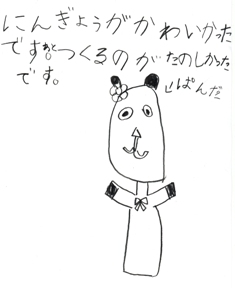 にんぎょうがかわいかった
です。あとつくるのがたのしかった
です。
ぱんだ